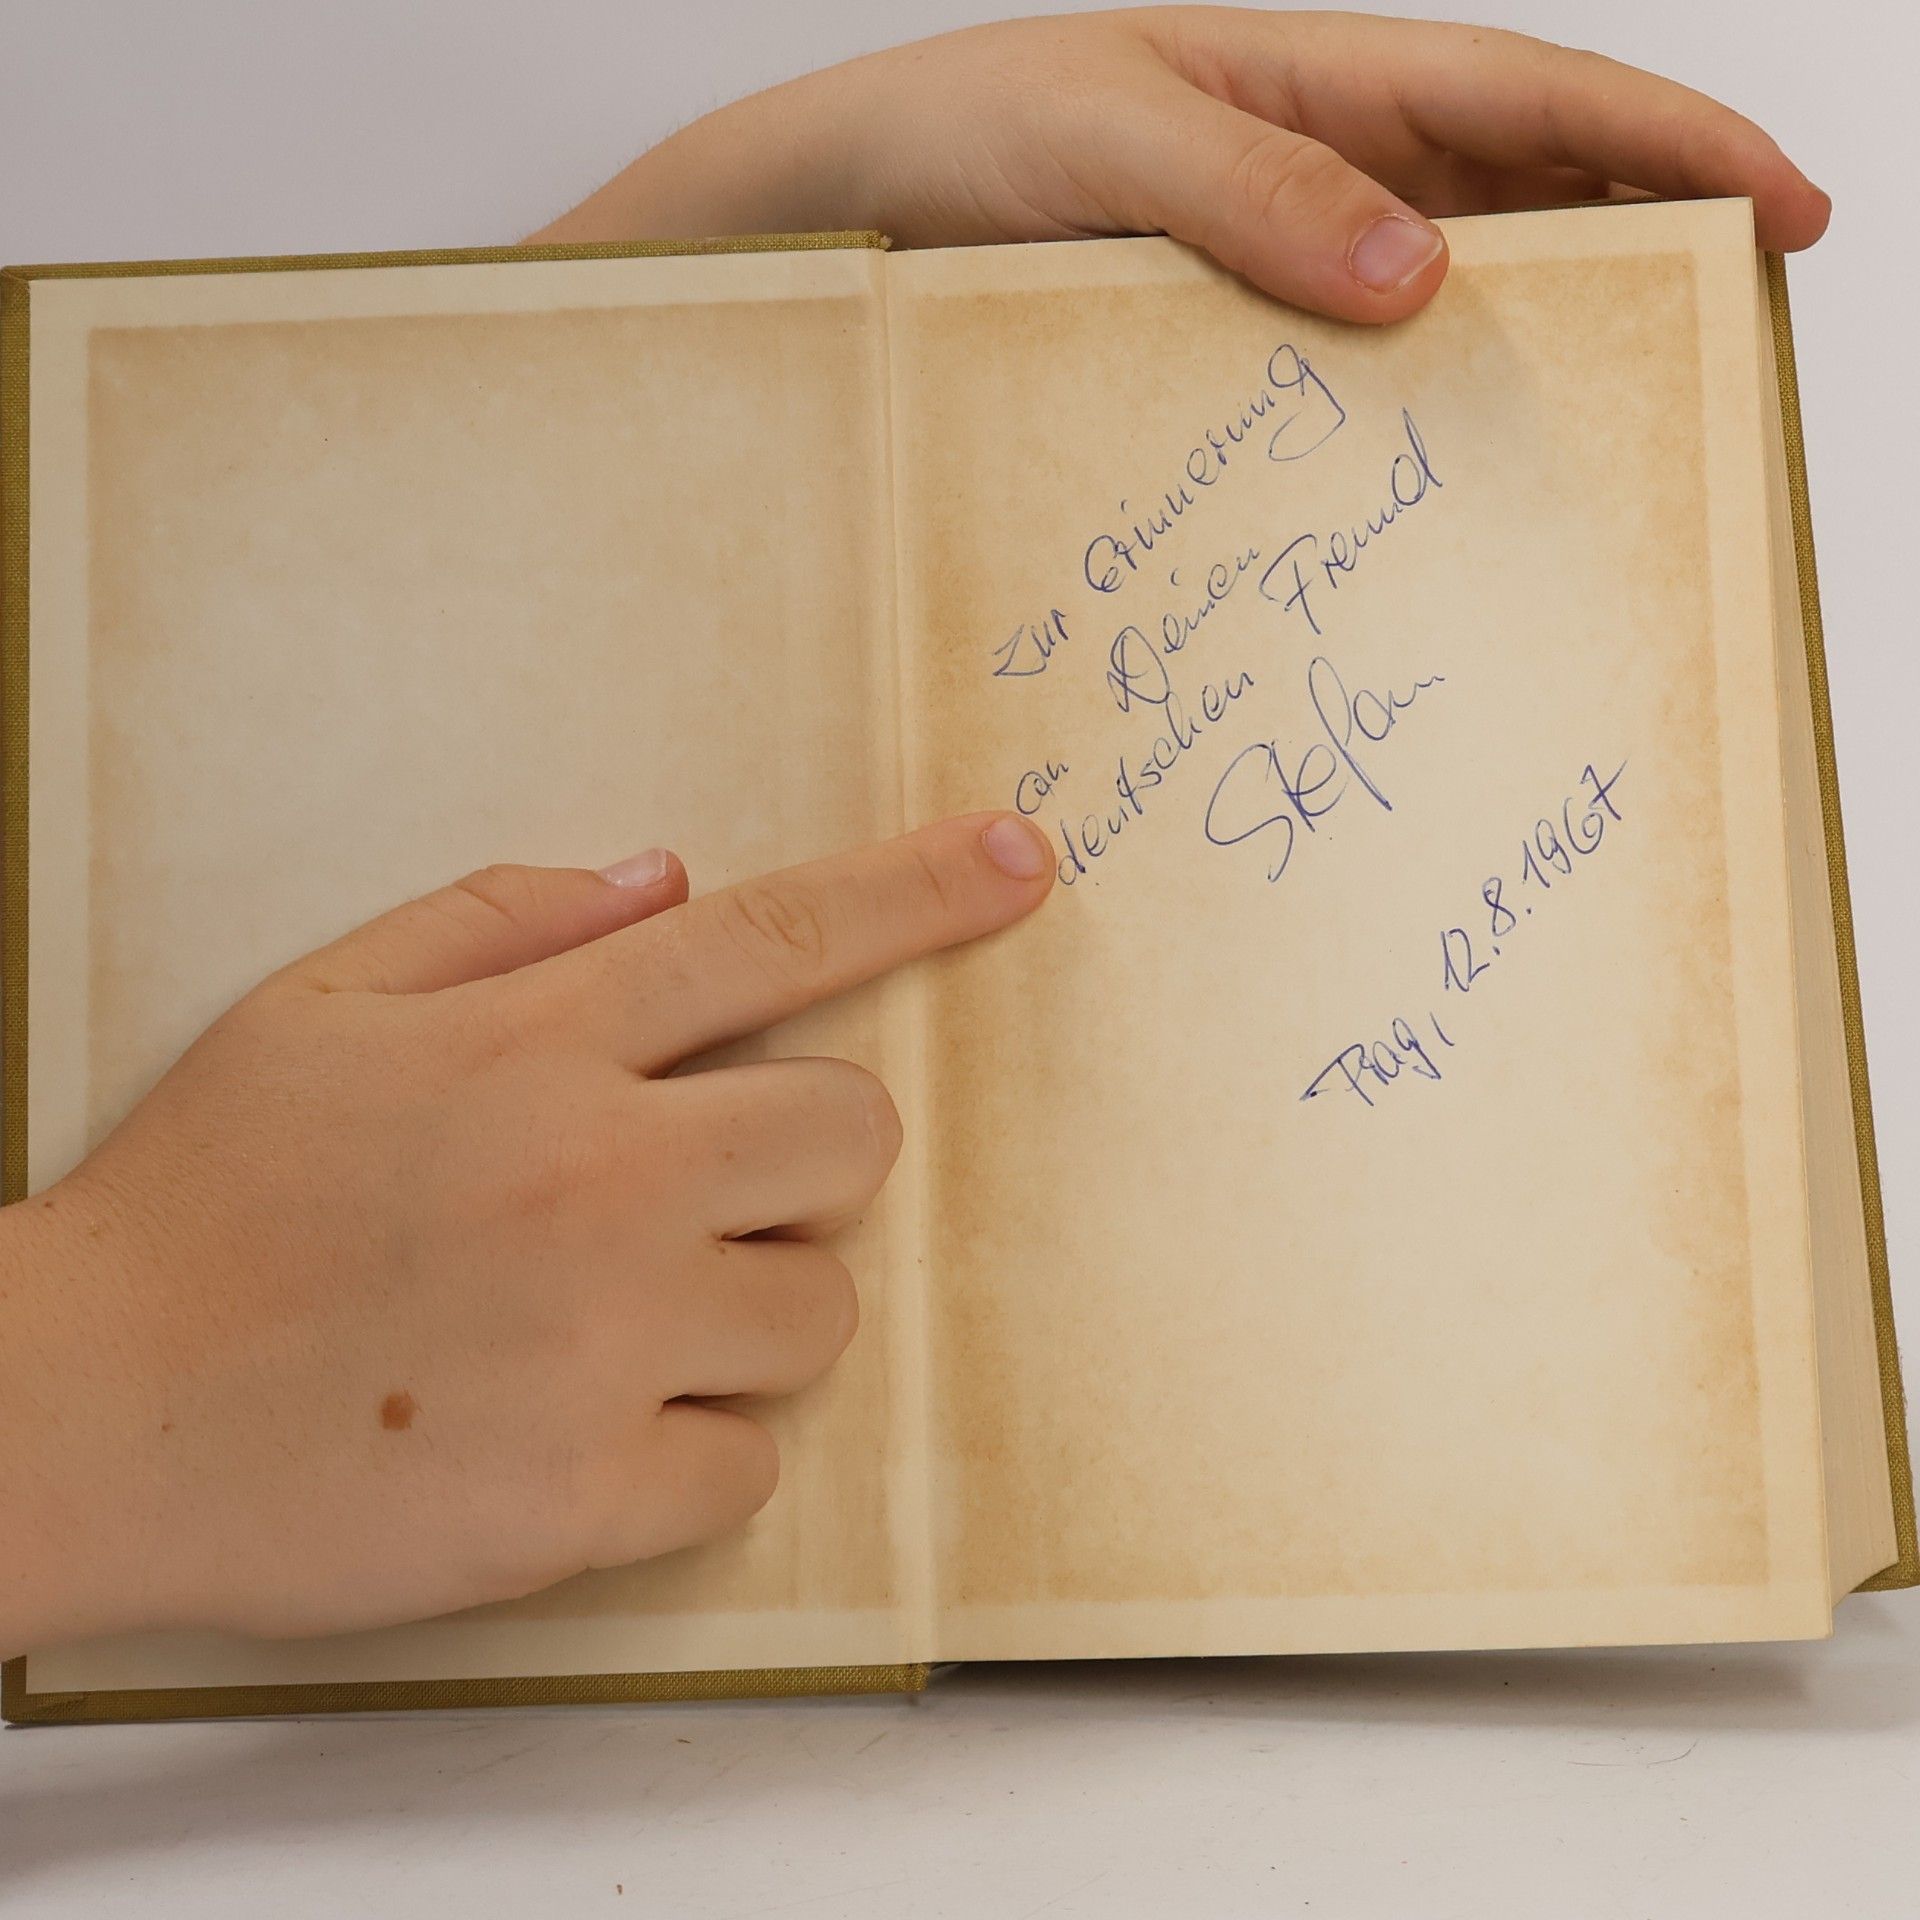 Zur Erinnerung
an Deinen
deutschen Freund
Stefan
Prag, 12.8.1967